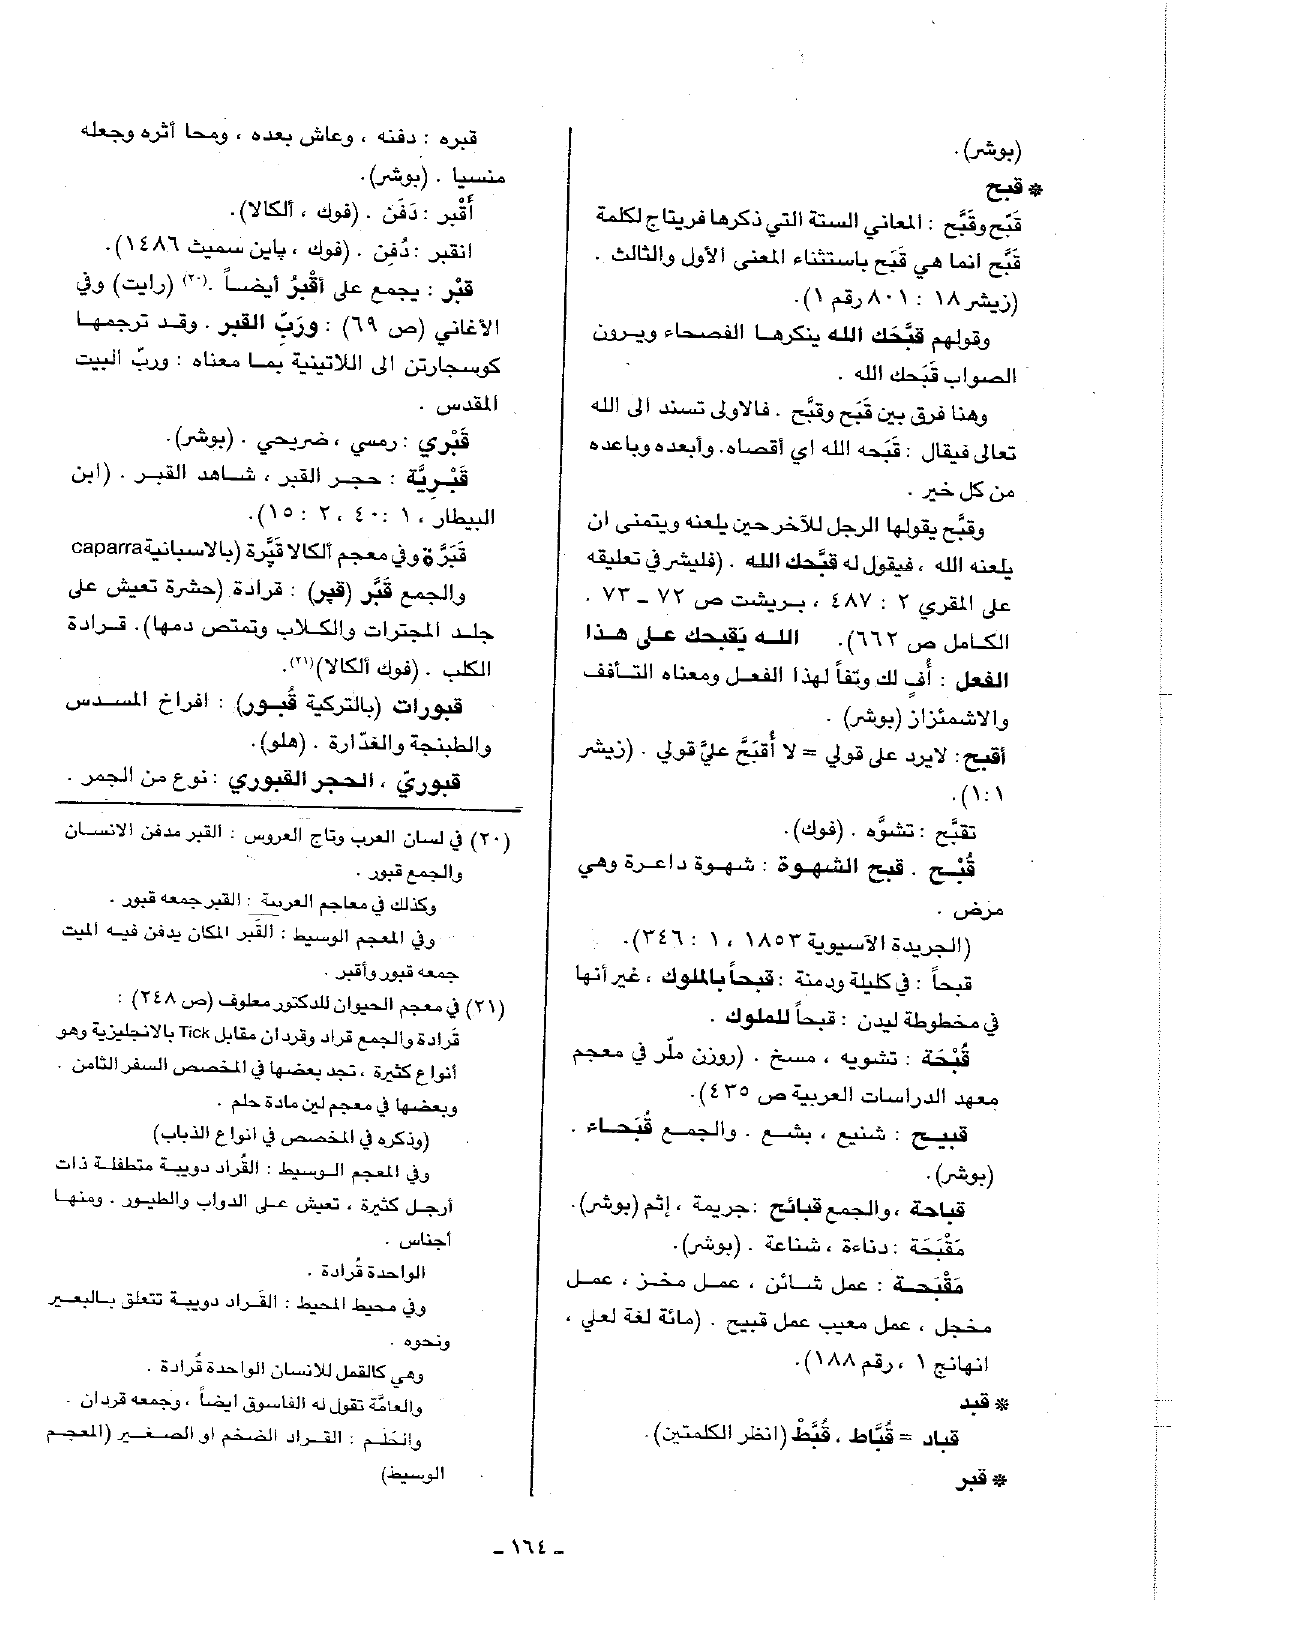 (بوشر).
* قبح
قَبَح وقَبَّح : المعاني الستة التي ذكرها فريتاج لكلمة
قَبَّح انما هي قَبَح باستثناء المعنى الأول والثالث .
(زيشر ١٨ : ٨٠١ رقم ١).
وقولهم قبَّحَك الله ينكرها الفصحاء ويرون
الصواب قَبَحك الله .
وهنا فرق بين قَبَح وقبَّح . فالاولى تسند الى الله
تعالى فيقال : قَبَحه الله اي أقصاه. وأبعده وباعده
من كل خير .
وقبَّح يقولها الرجل للآخر حين يلعنه ويتمنى ان
يلعنه الله ، فيقول له قبَّحك الله . (فليشر في تعليقه
على المقري ٢ : ٤٨٧ ، بريشت ص ٧٢ ـ ٧٣ .
الكامل ص ٦٦٢). الله يَقبحك على هذا
الفعل : أُفٍ لك وتفاً لهذا الفعل ومعناه التأفف
والاشمئزاز (بوشر) .
أقبح: لايرد على قولي = لا أُقبَّحَ عليَّ قولي . (زيشر
١:١).
تقبَّح : تشوَّه . (فوك).
قُبْح . قبح الشهوة : شهوة داعرة وهي
مرض .
(الجريدة الآسيوية ١٨٥٣ ، ١ : ٣٤٦).
قبحاً : في كليلة ودمنة : قبحاً بالملوك ، غير أنها
في مخطوطة ليدن : قبحاً للملوك .
قُبْحَة : تشويه ، مسخ . (روزن ملّر في معجم
معهد الدراسات العربية ص ٤٣٥).
قبيح : شنيع ، بشع . والجمع قُبَحاء .
(بوشر).
قباحة ، والجمع قبائح : جريمة ، إثم (بوشر).
مَقْبَحَة : دناءة ، شناعة . (بوشر).
مَقْبَحة : عمل شائن ، عمل مخز ، عمل
مخجل ، عمل معيب عمل قبيح . (مائة لغة لعلي ،
انهانج ١ ، رقم ١٨٨).
* قبد
قباد = قُبَّاط ، قُبَّطْ (انظر الكلمتين).
* قبر
قبره : دفنه ، وعاش بعده ، ومحا أثره وجعله
منسيا . (بوشر).
أَقْبر : دَفَن . (فوك ، ألكالا).
انقبر : دُفن . (فوك ، پاين سميث ١٤٨٦).
قبْر : يجمع على أقْبُرُ أيضاً .(٢٠) (رايت) وفي
الأغاني (ص ٦٩) : وربّ القبر . وقد ترجمها
كوسجارتن الى اللاتينية بما معناه : وربّ البيت
المقدس .
قَبْري : رمسي ، ضريحي . (بوشر).
قَبْريَّة : حجر القبر ، شاهد القبر . (ابن
البيطار ، ١ : ٤٠ ، ٢ : ١٥).
قَبَرَّة وفي معجم ألكالا قَپَّرة (بالاسبانية caparra
والجمع قَبَّر (قپر) : قرادة (حشرة تعيش على
جلد المجترات والكلاب وتمتص دمها). قرادة
الكلب . (فوك ألكالا)(٢١).
قبورات (بالتركية قُبور) : افراخ المسدس
والطبنجة والغدّارة . (هلو).
قبوريّ ، الحجر القبوري : نوع من الجمر .
(٢٠) في لسان العرب وتاج العروس : القبر مدفن الانسان
والجمع قبور .
وكذلك في معاجم العربية : القبر جمعه قبور .
وفي المعجم الوسيط : القَبر المكان يدفن فيه الميت
جمعه قبور وأقبر .
(٢١) في معجم الحيوان للدكتور معلوف (ص ٢٤٨) :
قُرادة والجمع قراد وقردان مقابل Tick بالانجليزية وهو
أنواع كثيرة ، تجد بعضها في المخصص السفر الثامن .
وبعضها في معجم لين مادة حلم .
(وذكره في المخصص في انواع الذباب)
وفي المعجم الوسيط : القُراد دويبة متطفلة ذات
أرجل كثيرة ، تعيش على الدواب والطيور . ومنها
أجناس .
الواحدة قُرادة .
وفي محيط المحيط : القراد دويبة تتعلق بالبعير
ونحوه .
وهي كالقمل للانسان الواحدة قُرادة .
والعامّة تقول له الفاسوق ايضاً ، وجمعه قردان .
والحَلَم : القراد الضخم او الصغير (المعجم
الوسيط)
ـ ١٦٤ ـ